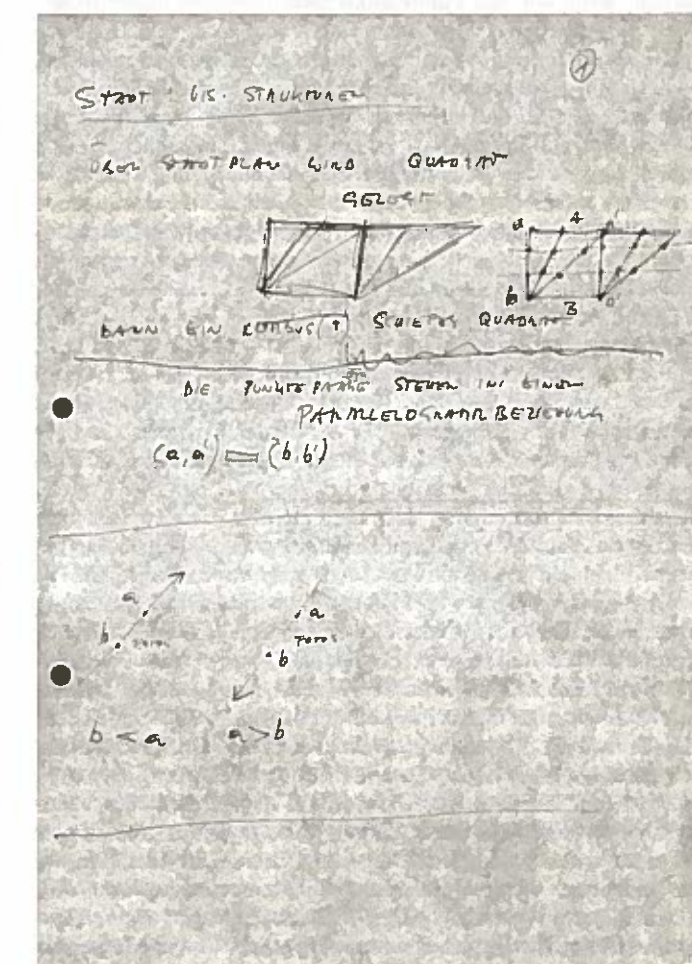 1
STADT STRUKTUREN
ÜBER STADTPLAN WIRD QUADRAT
GELEGT
a 4 a'
b B a'
DANN EIN RHOMBUS (↑) SCHIEFES QUADRAT
DIE PUNKTEPAARE STEHEN IN EINER
PARALLELOGRAMM BEZIEHUNG
(a, a') = (b, b')
a
b FOTOS
a
FOTOS
b
b < a a > b